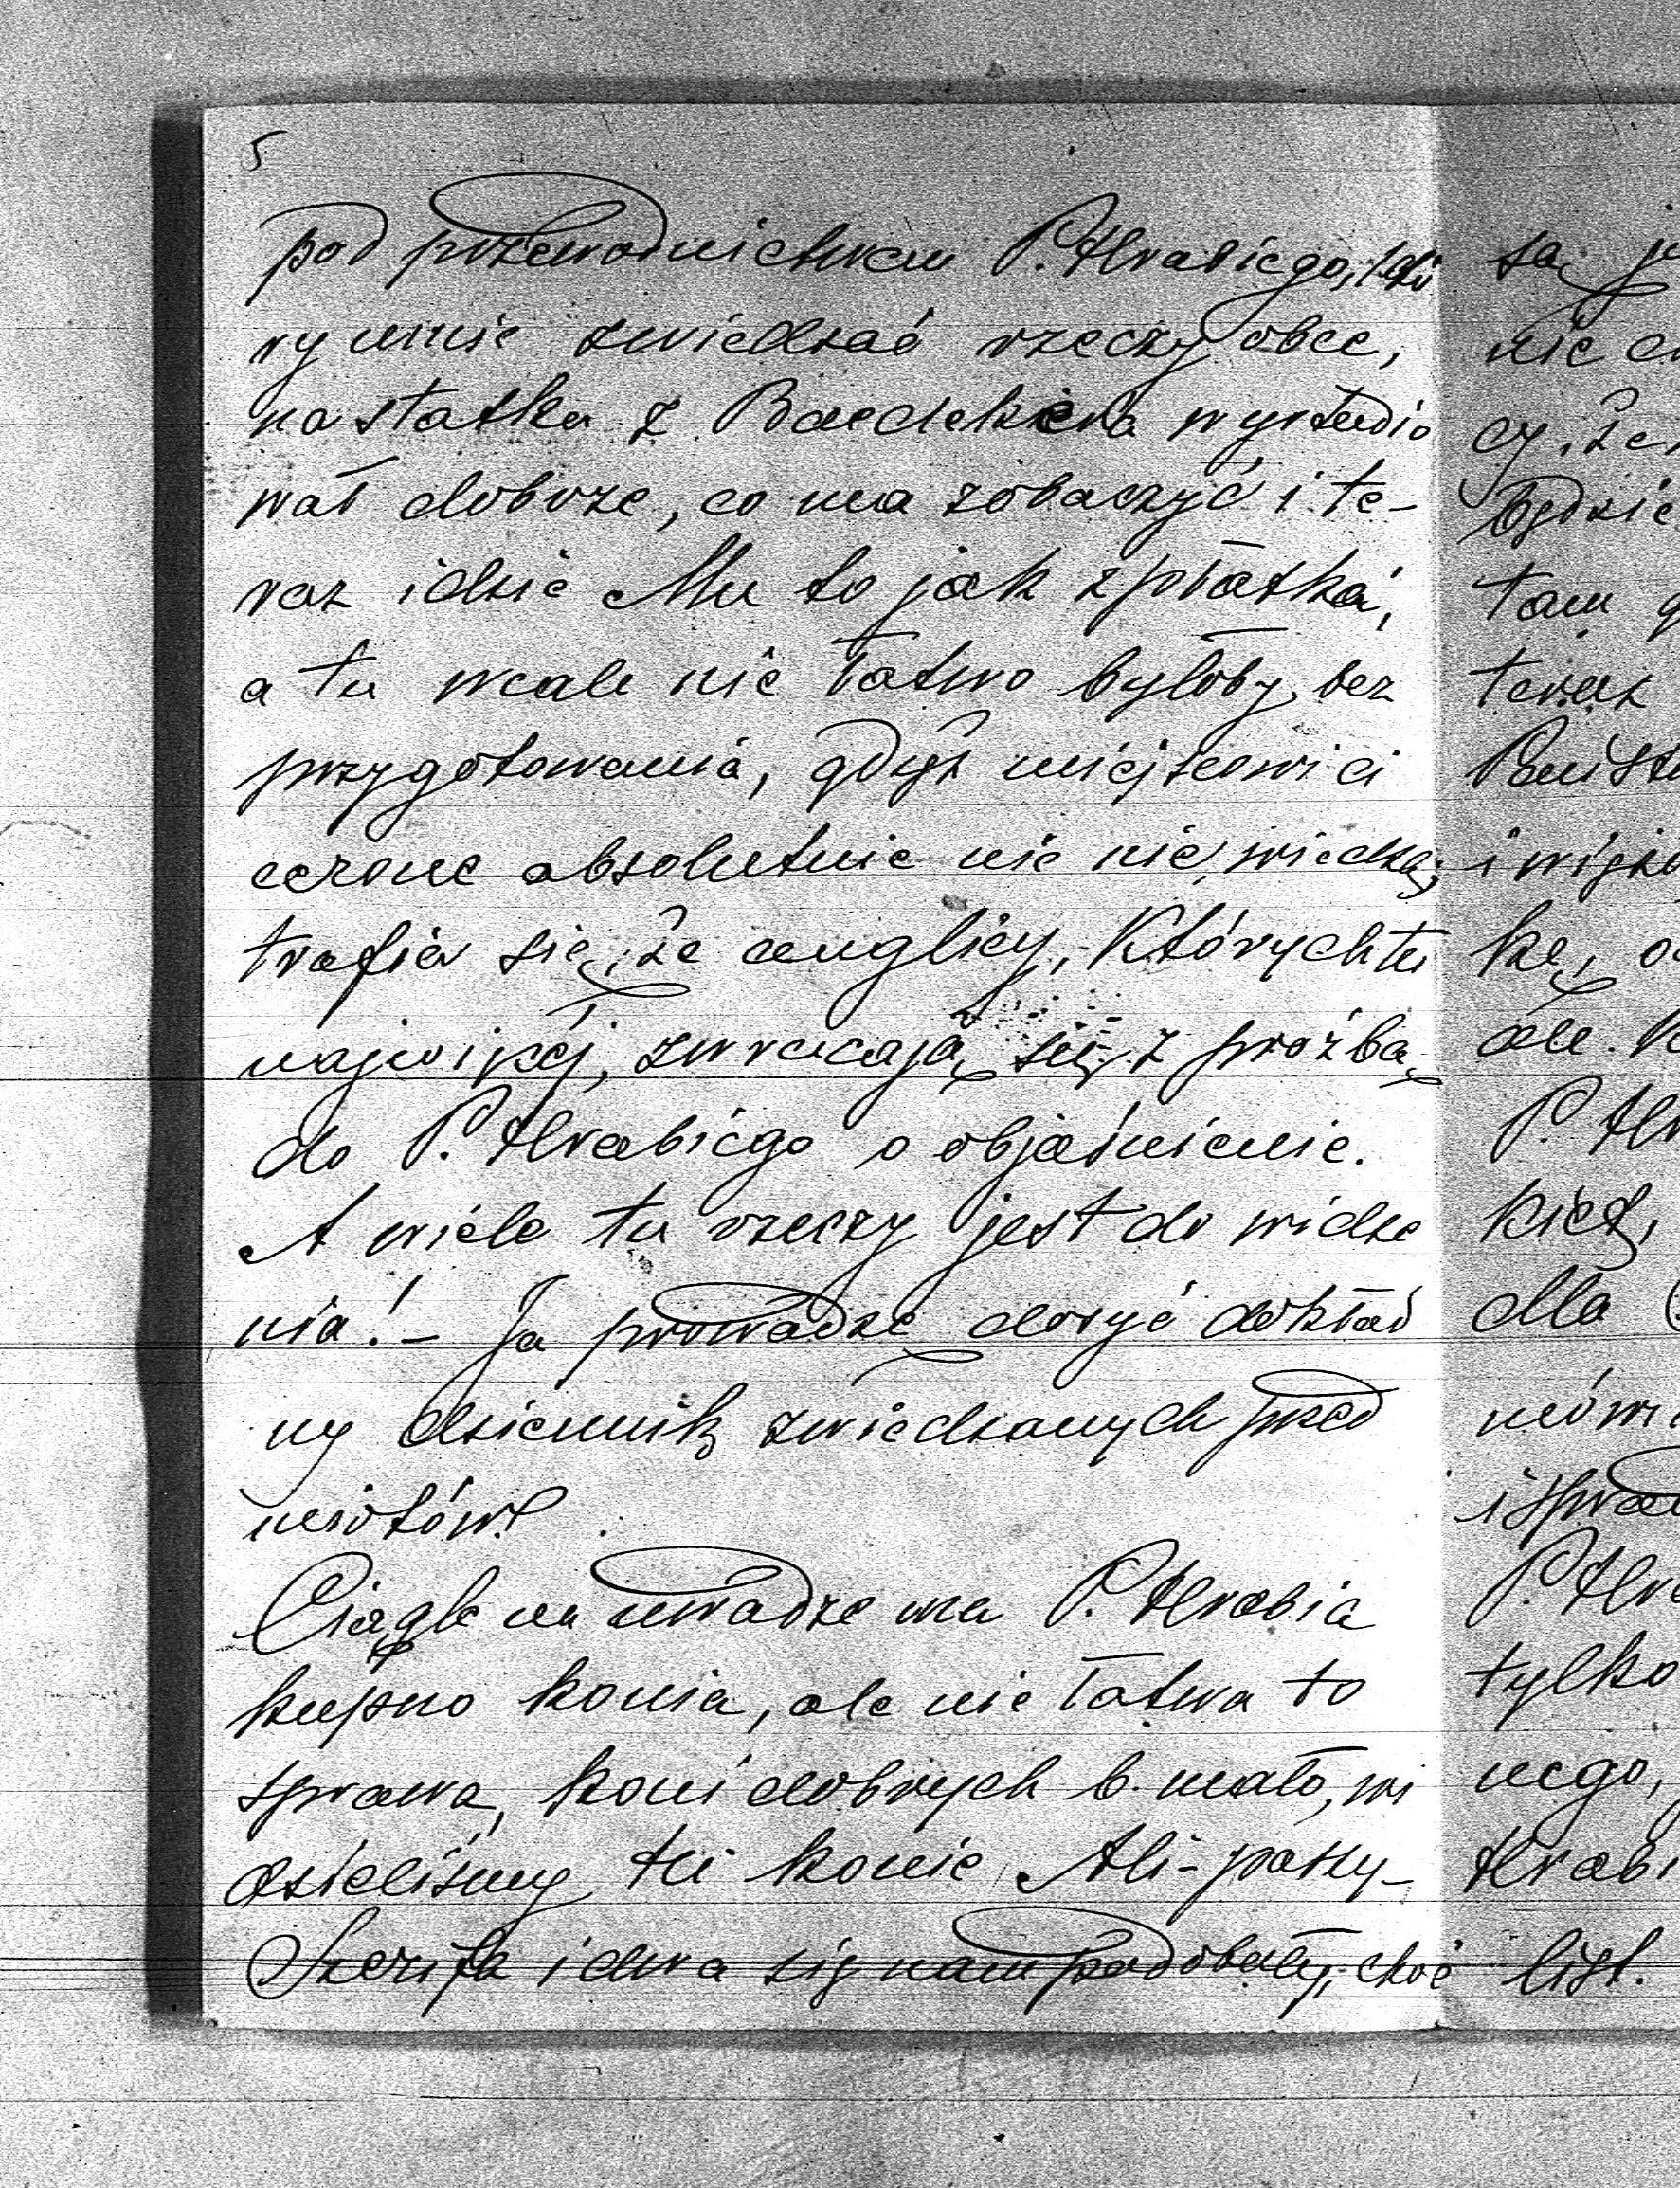 5
pod przewodnictwem P. Hrabiego, któ
ry umie zwiedzać rzeczy obce,
na statku z Baedekera wystudio
wał dobrze, co ma zobaczyć i te-
raz idzie Mu to jak z płatka,
a tu wcale nie łatwo byłoby bez
przygotowania, gdyż miejscowi ci
cerone absolutnie nic nie wiedzą,
trafia się, że anglicy, których tu
najwięcej, zwracają się z prośbą
do P. Hrabiego o objaśnienie.
A wiele tu rzeczy jest do widze
nia! - Ja prowadzę dosyć dokład
ny dziennik zwiedzanych przed
miotów.
Ciągle na uwadze ma P. Hrabia
kupno konia, ale nie łatwa to
sprawa, koni dobrych b. mało, wi
dzieliśmy tu konie Ali-paszy-
Szerifa i dwa się nam podobały, choć
są
nie
cy, że
będzie
tam
teraz
ke,
ale.
P.
dla
P.
tylko
nego,
list.